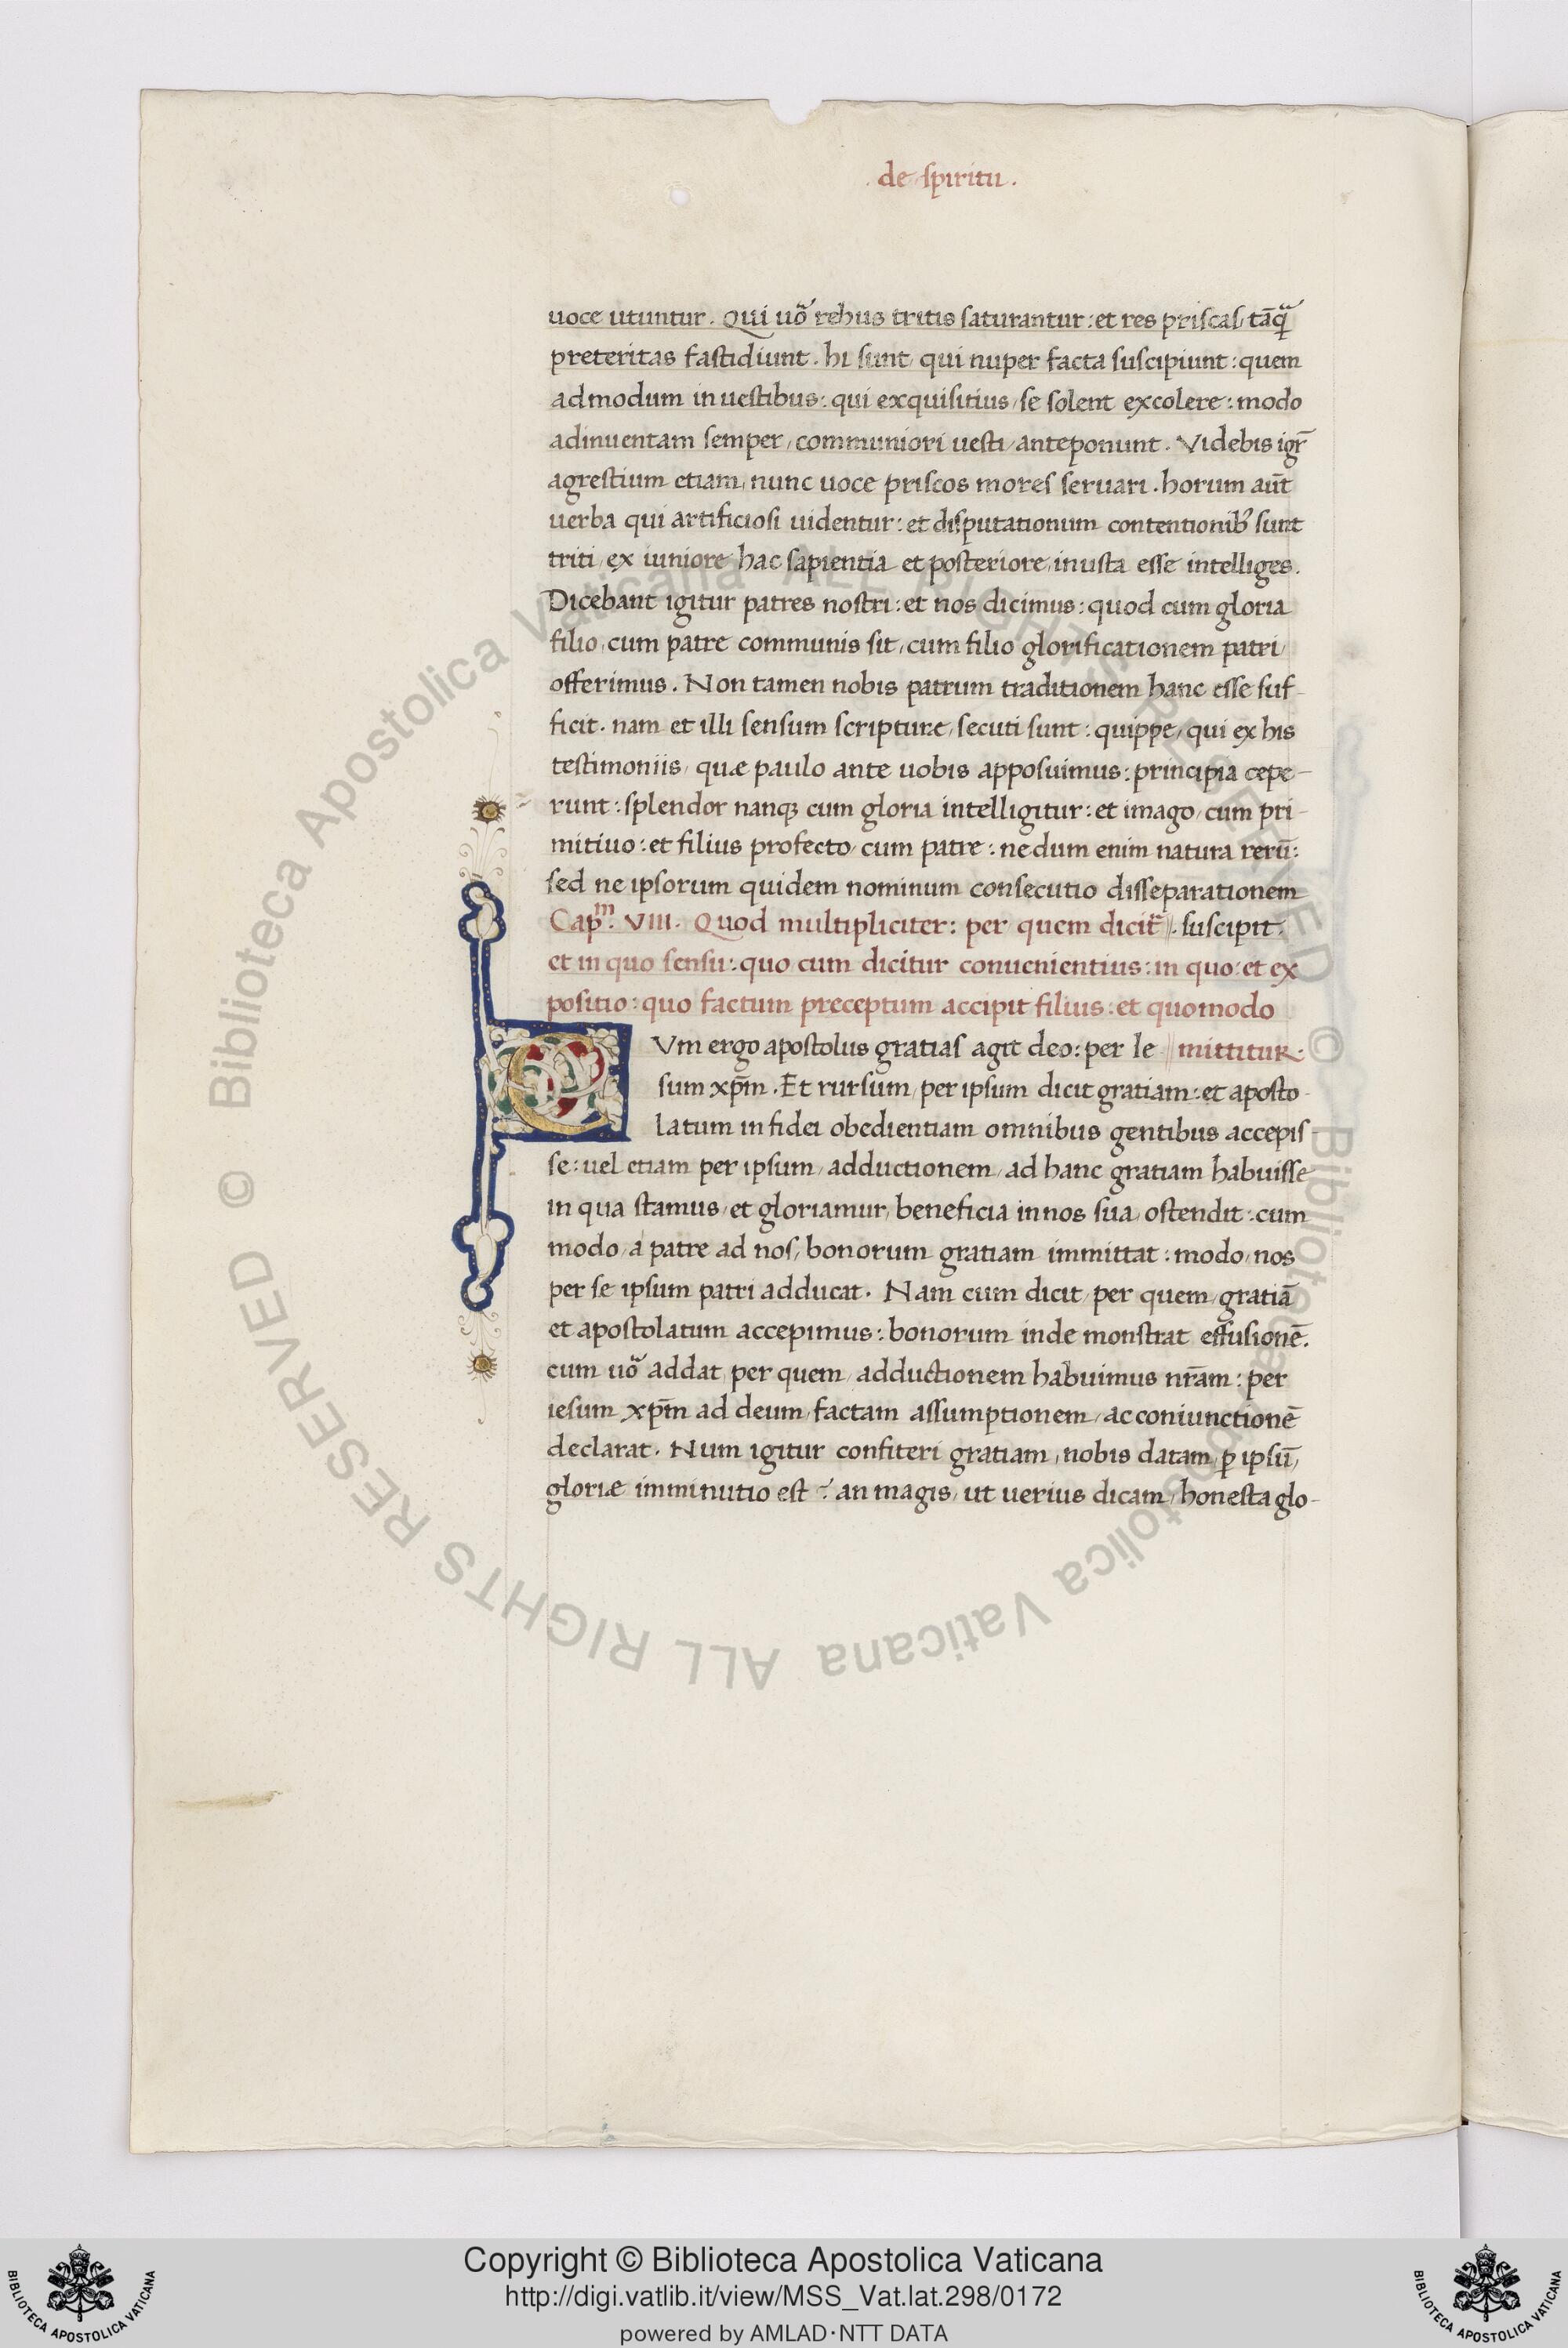 . de spiritu .
uoce utuntur . Qui uõ rebus tritis saturantur : et res priscas / tãq̃
preteritas fastidiunt . hi sunt / qui nuper facta suscipiunt : quem
admodum in uestibus : qui exquisitius / se solent excolere : modo
adinuentam semper / communiori uesti / anteponunt . Videbis igr̃
agrestium etiam / nunc uoce priscos mores seruari . horum aut̃
uerba qui artificiosi uidentur : et disputationum contentionib; sunt
triti / ex iuniore hac sapientia et posteriore / inusta esse intelliges .
Dicebant igitur patres nostri : et nos dicimus : quod cum gloria
filio / cum patre communis sit / cum filio glorificationem patri /
offerimus . Non tamen nobis patrum traditionem hanc esse suf-
ficit . nam et illi sensum scripture / secuti sunt : quippe / qui ex his
testimoniis / quæ paulo ante uobis apposuimus : principia cepe-
runt : splendor nanq; cum gloria intelligitur : et imago / cum pri-
mitiuo : et filius profecto / cum patre : nedum enim natura rerũ :
sed ne ipsorum quidem nominum consecutio disseparationem
Capᵐ. VIII . Quod multipliciter : per quem dicit̃ // . suscipit .
et in quo sensu : quo cum dicitur conuenientius : in quo : et ex
positio : quo factum preceptum accipit filius : et quomodo
CVm ergo apostolus gratias agit deo : per Ie // mittitur .
sum xp̃m . Et rursum / per ipsum dicit gratiam : et aposto-
latum in fidei obedientiam omnibus gentibus accepis-
se : uel etiam per ipsum / adductionem / ad hanc gratiam habuisse
in qua stamus / et gloriamur / beneficia in nos sua / ostendit : cum
modo / a patre ad nos / bonorum gratiam immittat : modo / nos
per se ipsum patri adducat . Nam cum dicit / per quem / gratiã
et apostolatum accepimus : bonorum inde monstrat effusionẽ .
cum uõ addat / per quem / adductionem habuimus nr̃am : per
iesum xp̃m ad deum / factam assumptionem / ac coniunctionẽ
declarat . Num igitur confiteri gratiam / nobis datam / ꝑ ipsũ /
gloriæ imminutio est ? an magis / ut uerius dicam / honesta glo-
© Biblioteca Apostolica Vaticana ALL RIGHTS RESERVED © Biblioteca Apostolica Vaticana ALL RIGHTS RESERVED
Copyright © Biblioteca Apostolica Vaticana
http://digi.vatlib.it/view/MSS_Vat.lat.298/0172
powered by AMLAD·NTT DATA
BIBLIOTECA APOSTOLICA VATICANA
BIBLIOTECA APOSTOLICA VATICANA